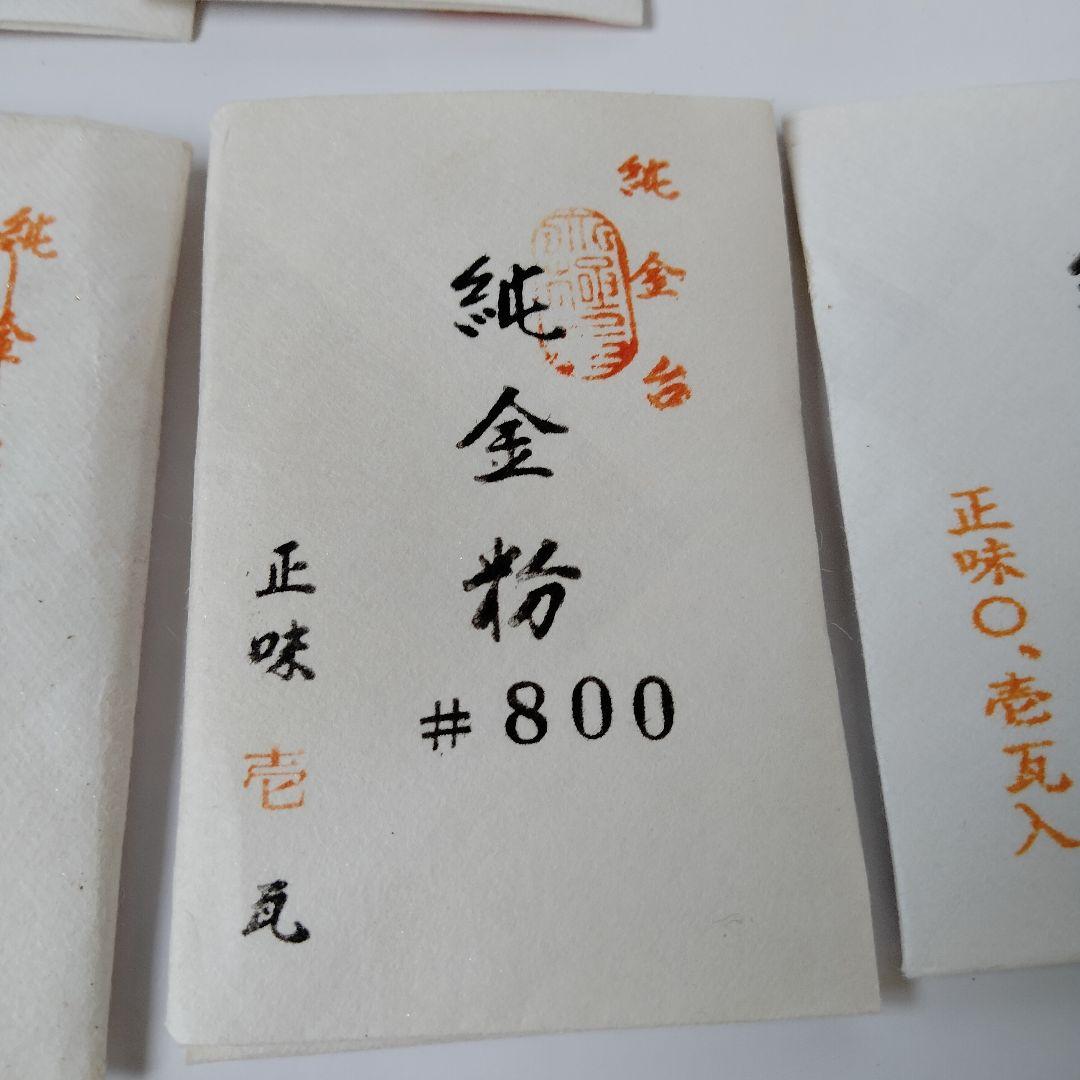 純金台
純金粉
#800
正味壱瓦
正味〇、壱瓦入
純金